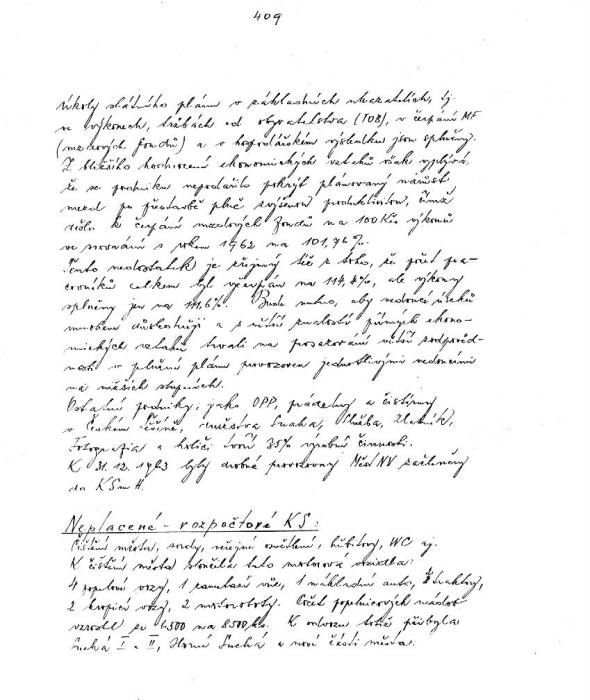 409
Úkoly státního plánu v základních ukazatelích, tj.
ve výkonech, tržbách od obyvatelstva (TOB), v čerpání MF
(mzdových fondů) a v hospodářském výsledku jsou splněny.
Z bližšího hodnocení ekonomických vztahů však vyplývá,
že se podniku nepodařilo pokrýt plánovaný nárůst
mezd po přestavbě plně zvýšenou produktivitou, čímž
došlo k čerpání mzdových fondů na 100 Kčs výkonů
ve srovnání s rokem 1962 na 101,76 %.
Tento nedostatek je zřejmý též z toho, že počet pra-
covníků celkem byl vyčerpán na 114,4%, ale výkony
splněny jen na 111,6%. Bude nutno, aby vedoucí úseků
mnohem důsledněji a s větší znalostí přímých ekono-
mických vztahů trvali na prosazování větší zodpověd-
nosti v plnění plánu provozoven jednotlivými vedoucími
na nižších stupních.
Ostatní podniky, jako OPP, prádelny a čistírny
v Českém Těšíně, Suchá, Služba, Zlatník,
Fotografia a holiči tvoří 35% výrobní činnosti.
K 31. 12. 1963 byly drobné provozovny MěstNV začleněny
do KSm H.
Neplacené - rozpočtové KS:
Čištění města, sady, veřejné osvětlení, hřbitovy, WC aj.
K čištění města sloužila tato motorová vozidla:
4 popelové vozy, 1 vůz, 1 nákladní auto, traktory,
2 kropicí vozy, 2 motoroboty. Počet popelnicových nádob
vzrostl ze 6.500 na 8500 ks. K odvozu totiž přibyla
Suchá I a II, Horní Suchá a nové části města.